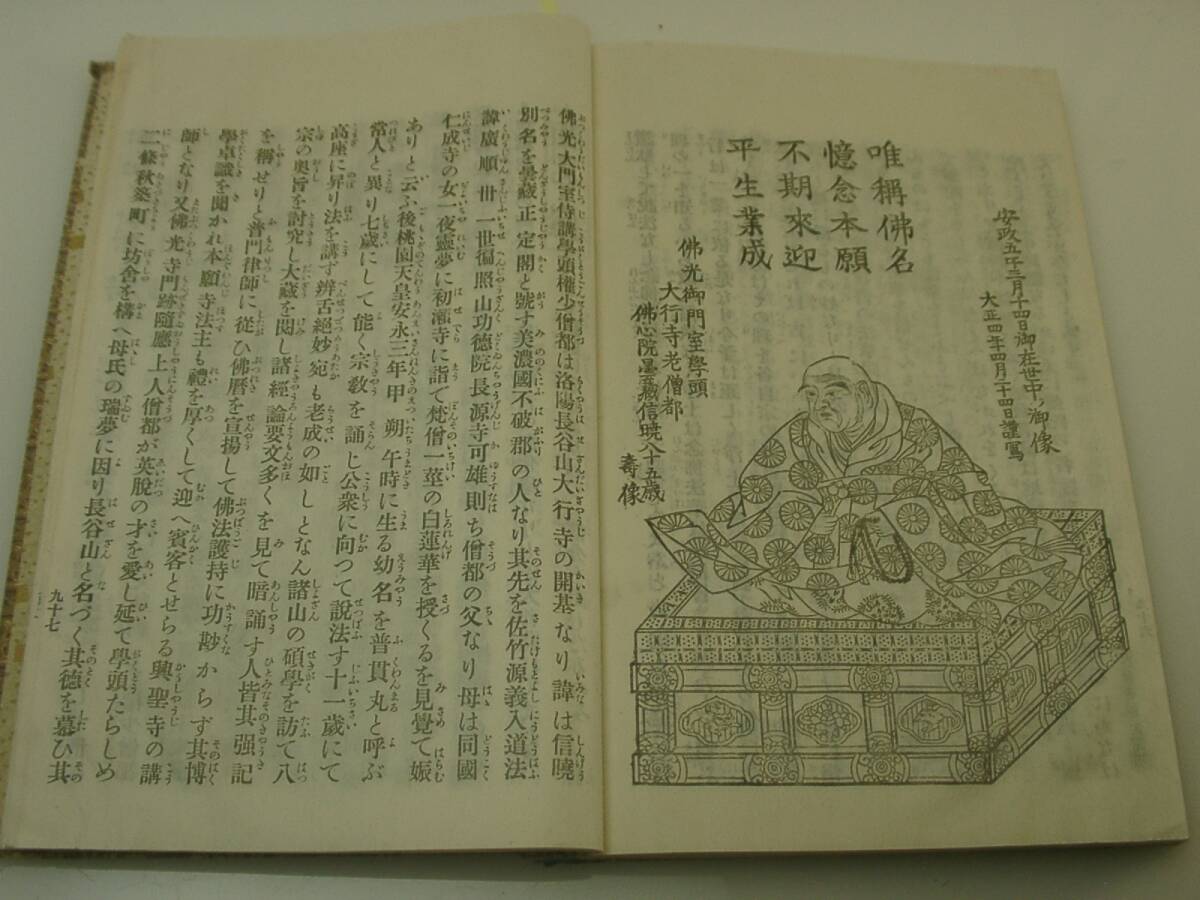 安政五年三月十四日御在世中ノ御像
大正四年四月二十四日謹寫
唯稱佛名
憶念本願
不期來迎
平生業成
佛光御門室學頭
大行寺老僧都
佛心院曇藏信曉八十五歳
壽像
佛光大門室侍講學頭權少僧都は洛陽長谷山大行寺の開基なり諱は信曉
別名を曇藏正定閣と號す美濃國不破郡の人なり其先を佐竹源義入道法
諱廣順丗一世徧照山功德院長源寺可雄則ち僧都の父なり母は同國
仁成寺の女一夜靈夢に初瀬寺に詣て梵僧一莖の白蓮華を授くるを見覺て娠
ありと云ふ後桃園天皇安永三年甲 朔 午時に生る幼名を普貫丸と呼ぶ
常人と異り七歳にして能く宗敎を誦し公衆に向つて說法す十一歳にて
高座に昇り法を講ず辨舌絕妙宛も老成の如しとなん諸山の碩學を訪て八
宗の奥旨を討究し大藏を閱し諸經論要文多くを見て暗誦す人皆其强記
を稱せりと普門律師に從ひ佛曆を宣揚して佛法護持に功尠からず其博
學卓識を聞かれ本願寺法主も禮を厚くして迎へ賓客とせらる興聖寺の講
師となり又佛光寺門跡隨應上人僧都が英脫の才を愛し延て學頭たらしめ
二條秋築町に坊舍を構へ母氏の瑞夢に因り長谷山と名づく其德を慕ひ其
九十七